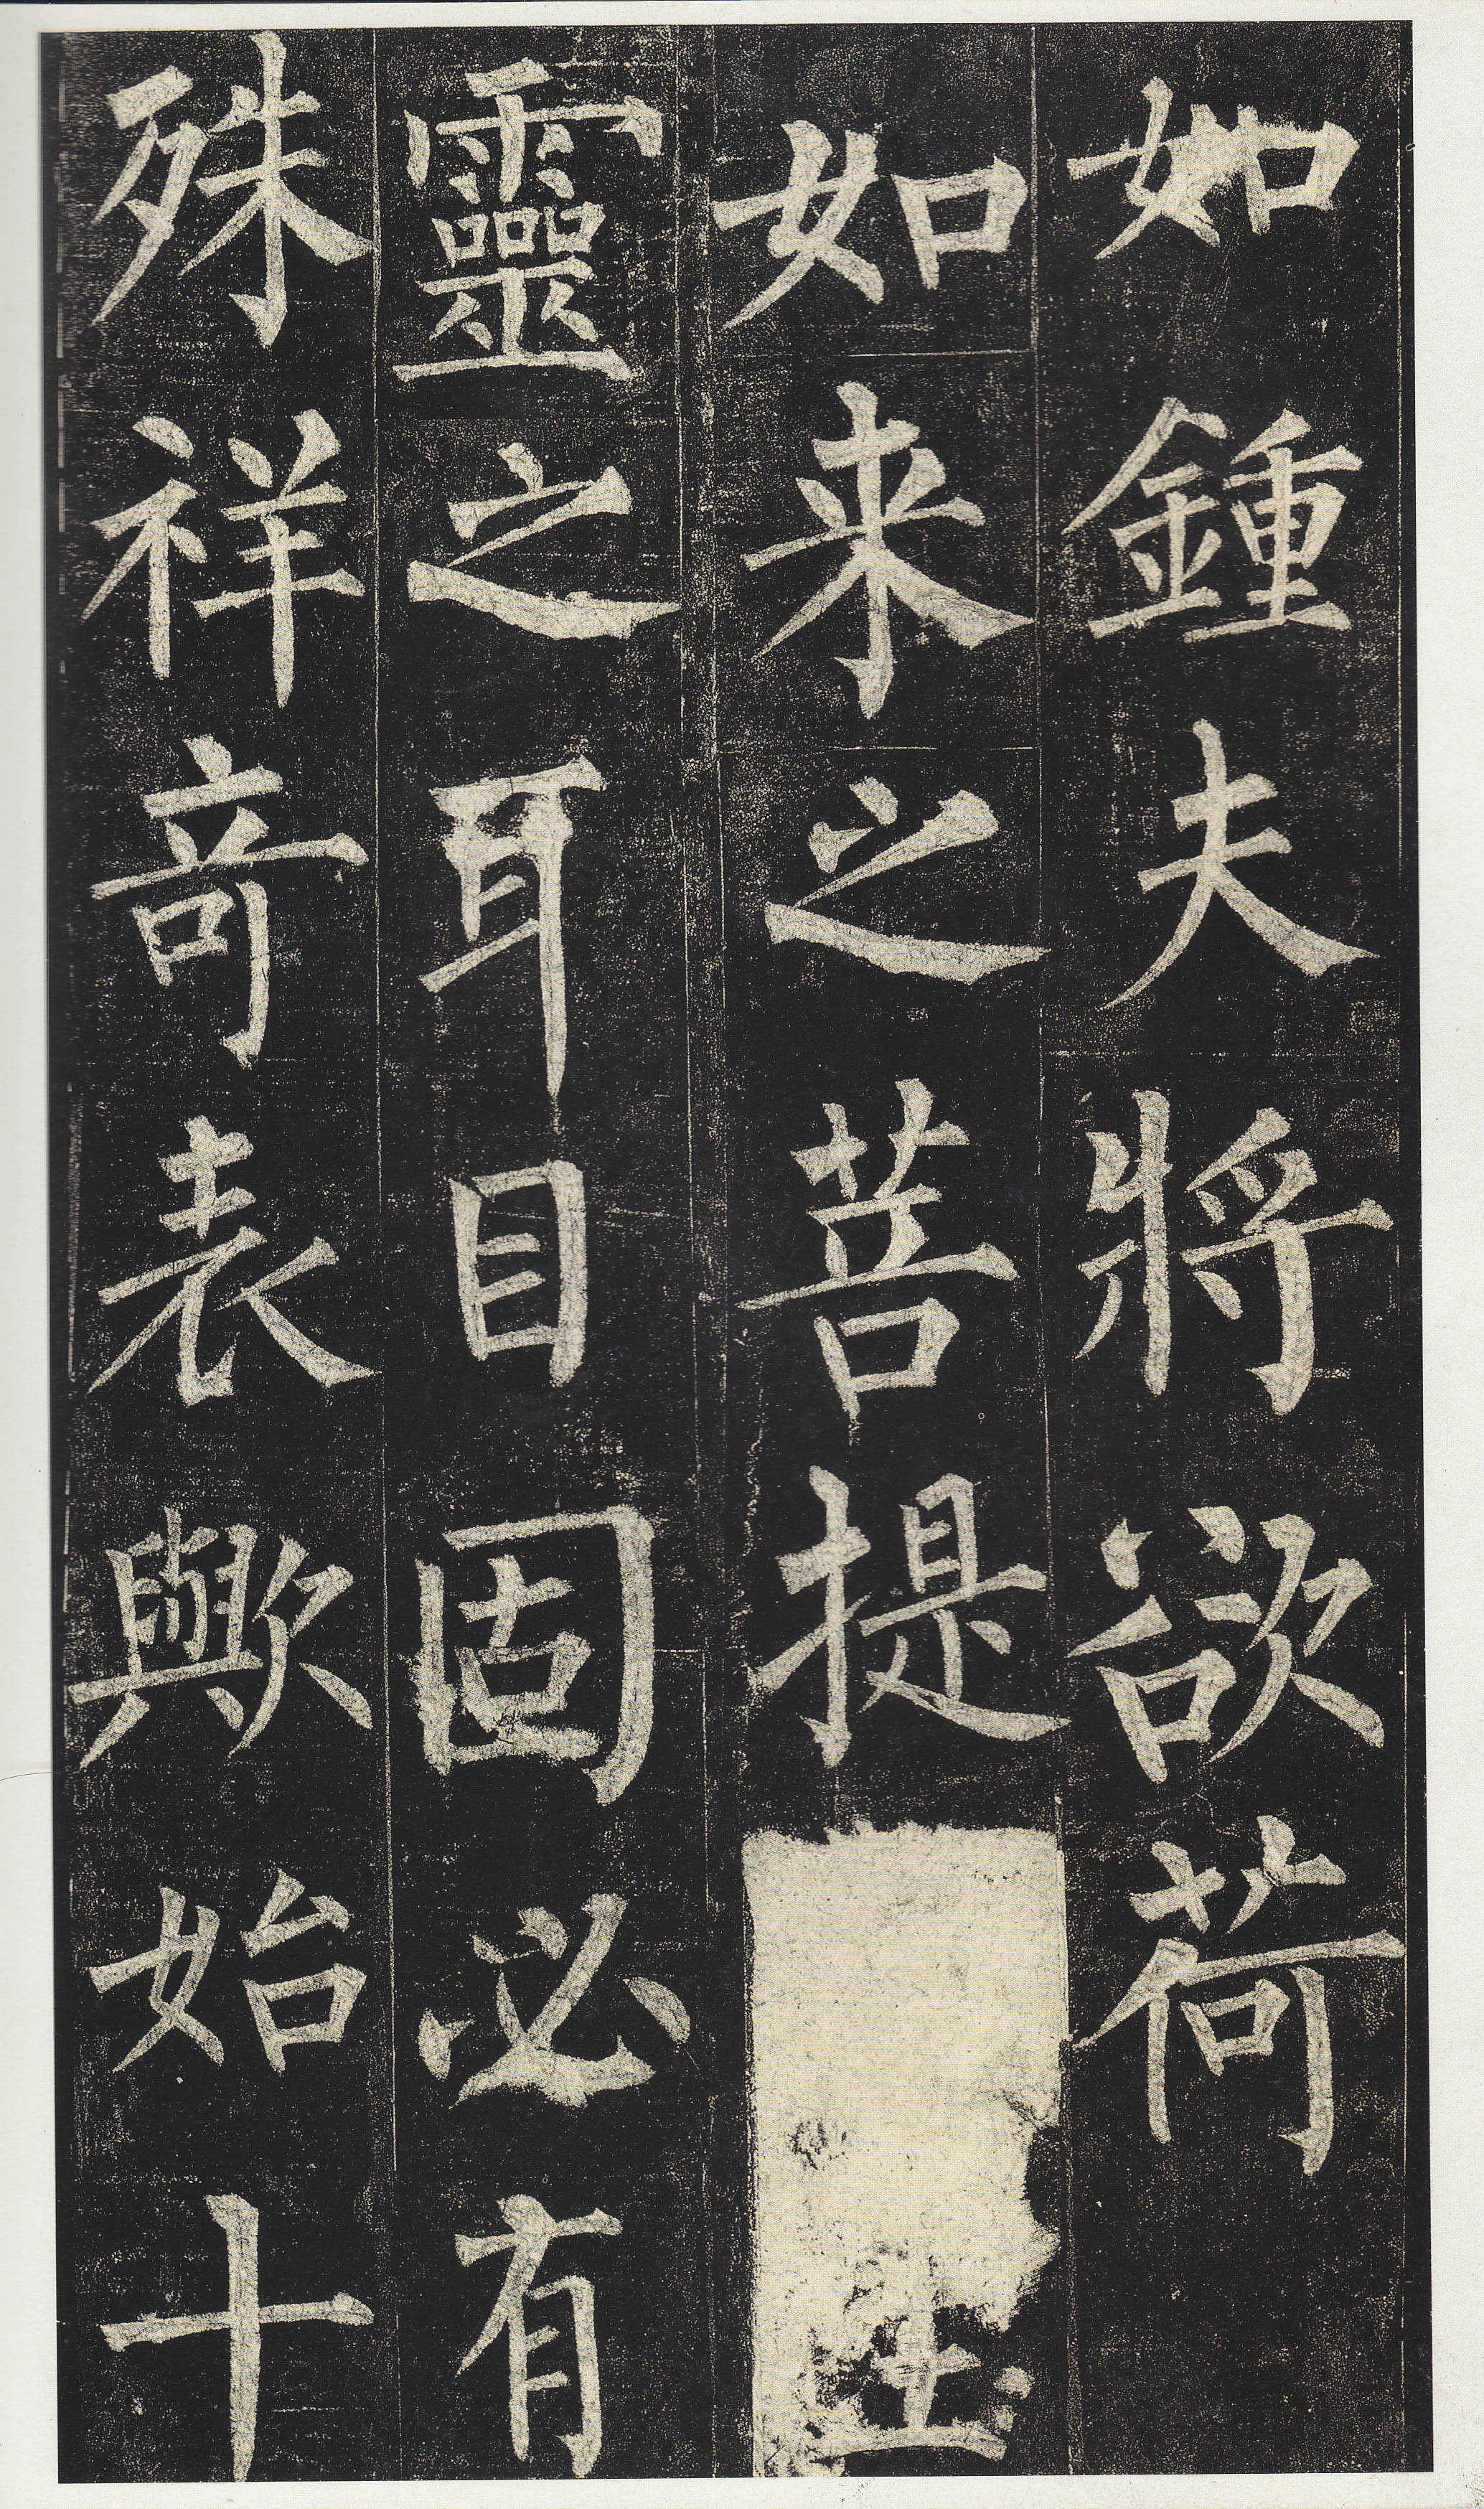 如鍾夫將欲荷
如来之菩提
靈之耳目固必有
殊祥竒表歟始十